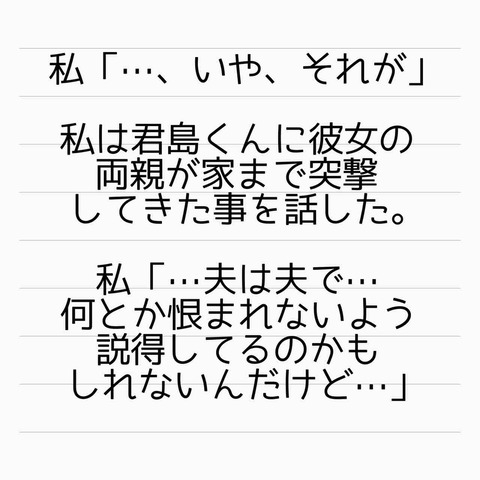 私「…、いや、それが」
私は君島くんに彼女の
両親が家まで突撃
してきた事を話した。
私「…夫は夫で…
何とか恨まれないよう
説得してるのかも
しれないんだけど…」